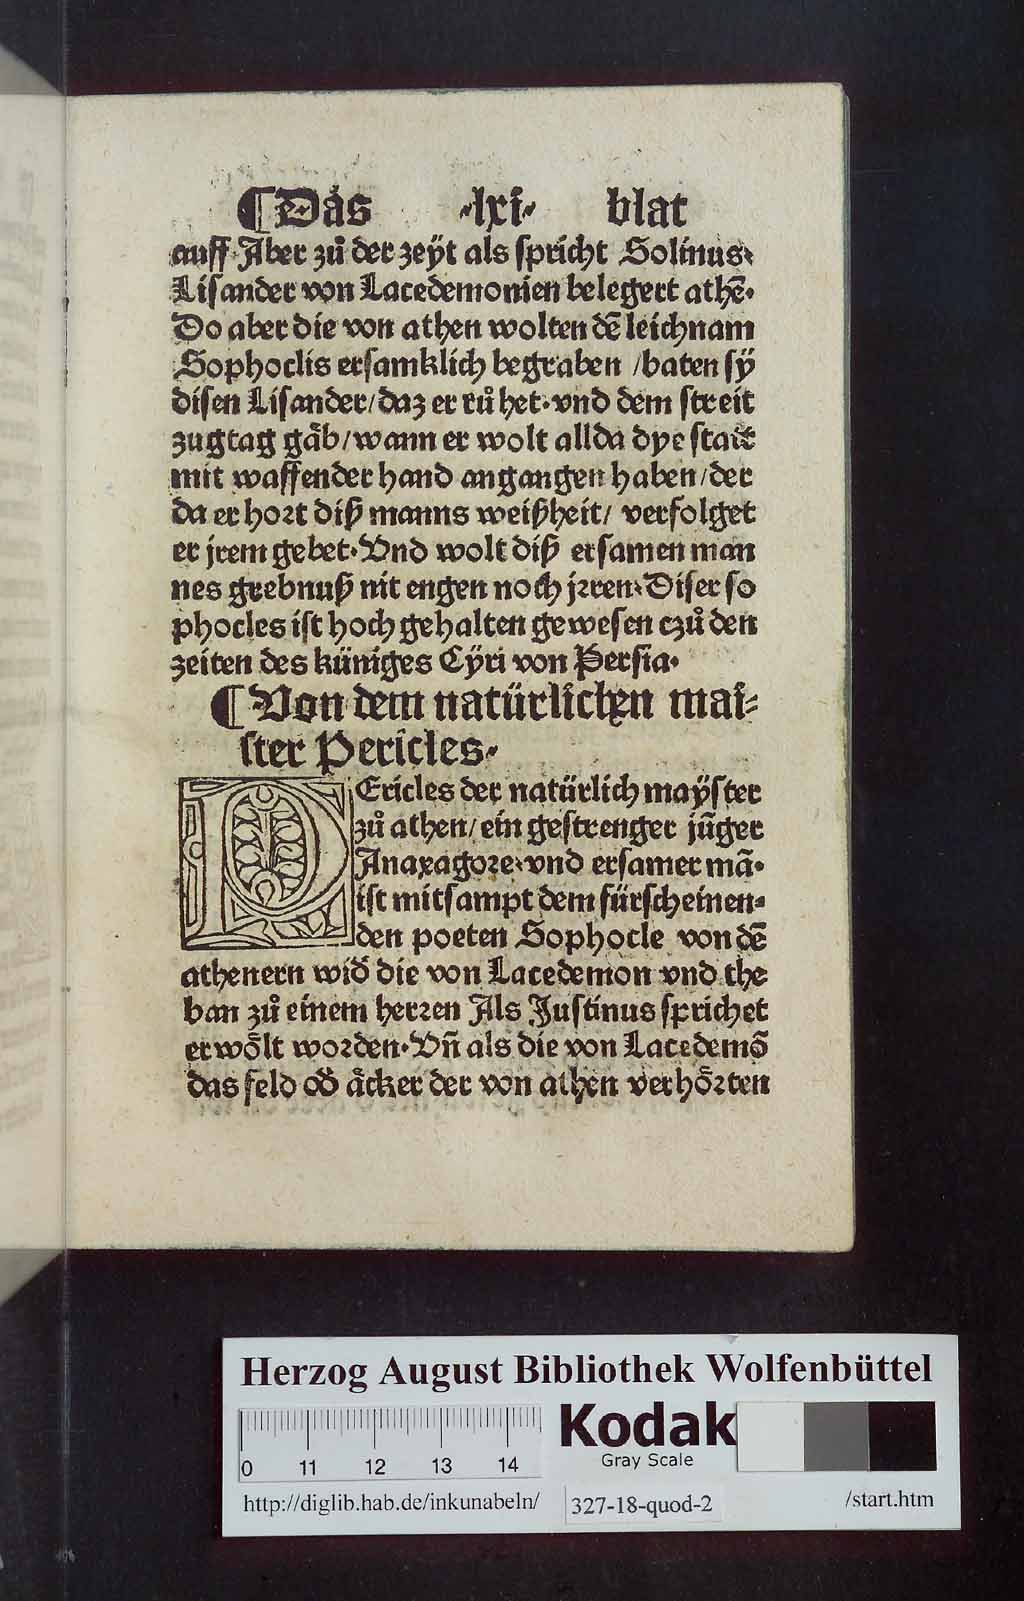 ¶ Das ·lxi· blat
auff. Aber zů der zeÿt als spricht Solinus.
Lisander von Lacedemonien belegert athē.
Do aber die von athen wolten dē leichnam
Sophoclis ersamklich begraben / baten sÿ
disen Lisander / daz er rů het. vnd dem streit
zugtag gāb / wann er wolt allda dye statt
mit waffender hand angangen haben / der
da er hort diß manns weißheit / verfolget
er jrem gebet. Vnd wolt diß ersamen man
nes grebnuß nit engen noch jrren. Diser so
phocles ist hoch gehalten gewesen czů den
zeiten des küniges Cÿri von Persia.
¶ Von dem natürlichen mai⸗
ster Pericles.
PEricles der natürlich maÿster
zů athen / ein gestrenger jūger
Anaxagore. vnd ersamer mā.
ist mitsampt dem fürscheinen⸗
den poeten Sophocle von dē
athenern wid̄ die von Lacedemon vnd the
ban zů einem herren Als Justinus sprichet
erwȫlt worden. Vn̄ als die von Lacedemō
das feld od̄ ācker der von athen verhȫrten
Herzog August Bibliothek Wolfenbüttel
0 11 12 13 14
Kodak
Gray Scale
http://diglib.hab.de/inkunabeln/ 327-18-quod-2 /start.htm